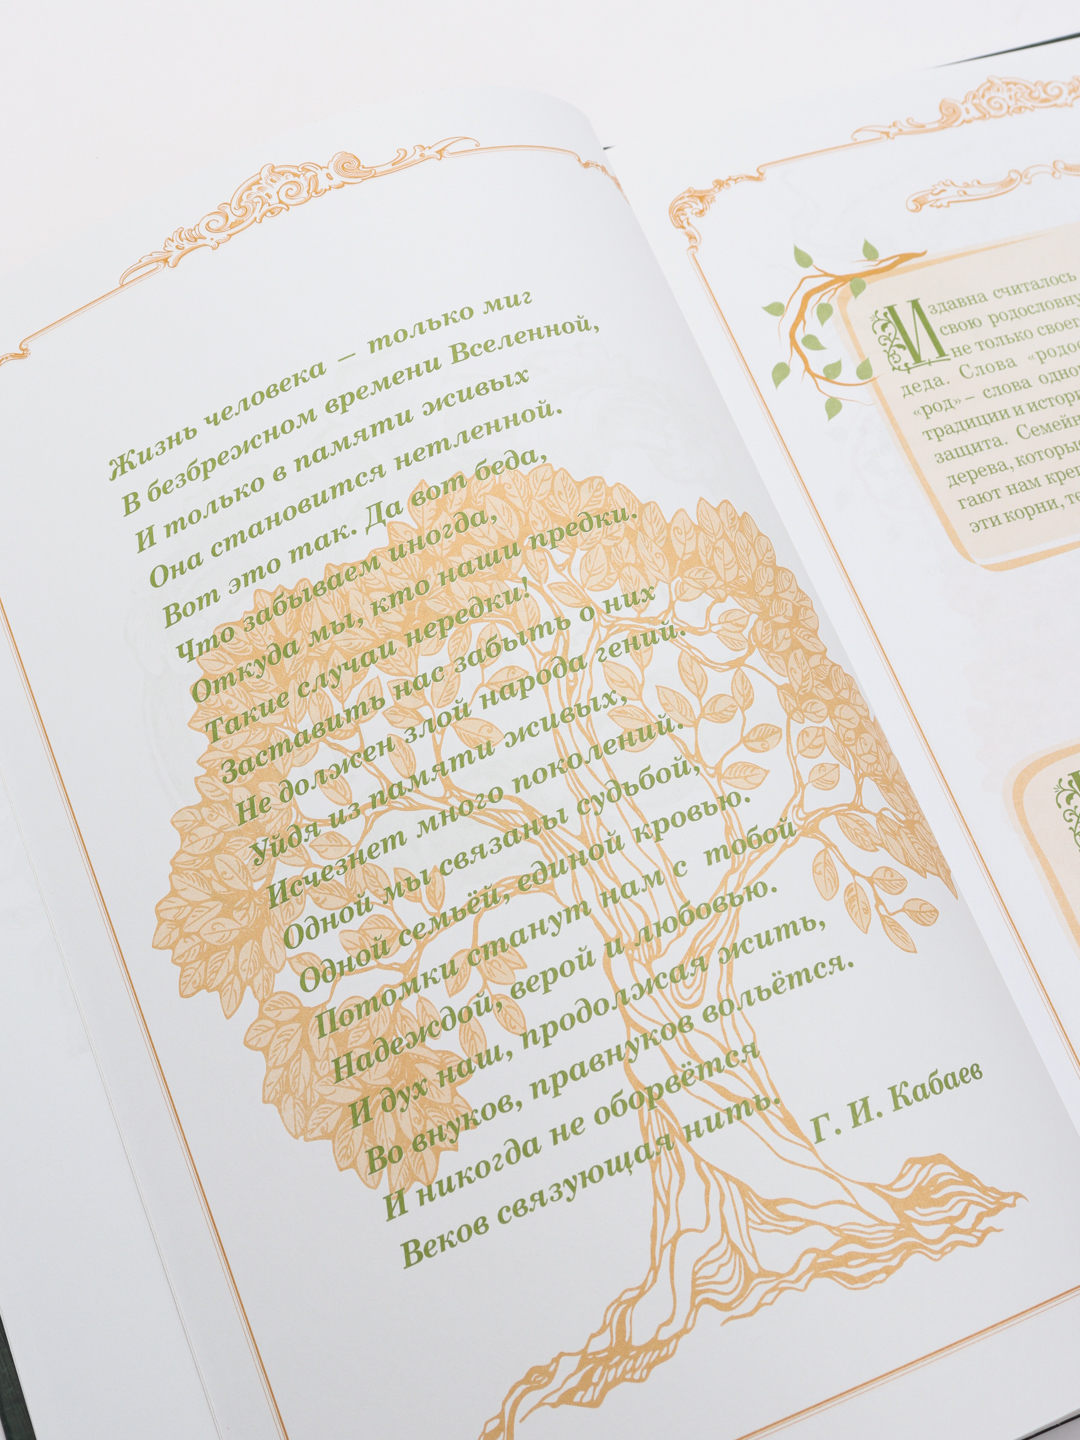 Жизнь человека – только миг
В безбрежном времени Вселенной,
И только в памяти живых
Она становится нетленной.
Вот это так. Да вот беда,
Что забываем иногда,
Откуда мы, кто наши предки.
Такие случаи нередки!
Заставить нас забыть о них
Не должен злой народа гений.
Уйдя из памяти живых,
Исчезнет много поколений.
Одной мы связаны судьбой,
Одной семьёй, единой кровью.
Потомки станут нам с тобой
Надеждой, верой и любовью.
И дух наш, продолжая жить,
Во внуков, правнуков вольётся.
И никогда не оборвётся
Веков связующая нить.
Г. И. Кабаев
Издавна считалось
свою
не только своег
деда. Слова
«род» – слова
традиции и
защита.
дерева,
гают нам
эти корни,